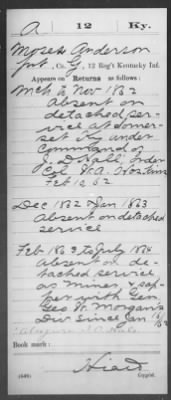 A 12 Ky.
Moses Anderson
Pvt., Co. G, 12 Reg't Kentucky Inf.
Appears on Returns as follows:
Mch to Nov 1862
Absent on
detached ser-
vice at Somer-
set Ky under
Command of
J. D. Hall, Order
Col W. A. Hoskins
Feb 12, 62
Dec 1862 & Jan 1863
Absent on detached
service
Feb 1863 to July 1864
Absent on de-
tached service
as miner & sap-
per with Gen
Geo W. Morgan's
Div since Jan
Book mark:
(646) Copyist.